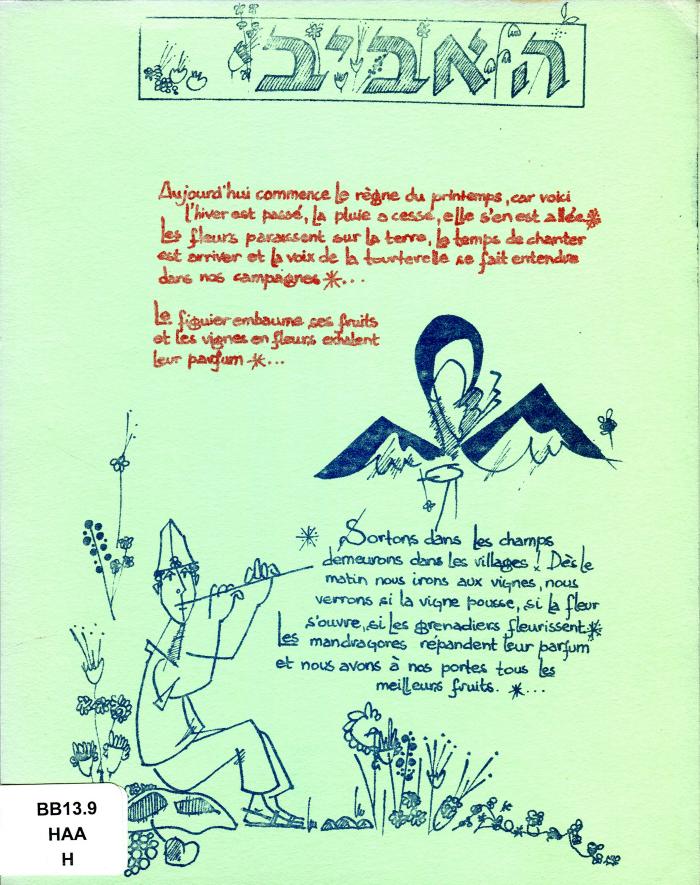 האביב
Aujourd'hui commence le règne du printemps, car voici
l'hiver est passé, la pluie a cessé, elle s'en est allée*
Les fleurs paraissent sur la terre, le temps de chanter
est arriver et la voix de la tourterelle se fait entendre
dans nos campagnes *...
Le figuier embaume ses fruits
et les vignes en fleurs exhalent
leur parfum *...
* Sortons dans les champs
demeurons dans les villages ! Dès le
matin nous irons aux vignes, nous
verrons si la vigne pousse, si la fleur
s'ouvre, si les grenadiers fleurissent*
Les mandragores répandent leur parfum
et nous avons à nos portes tous les
meilleurs fruits. *...
BB13.9
HAA
H